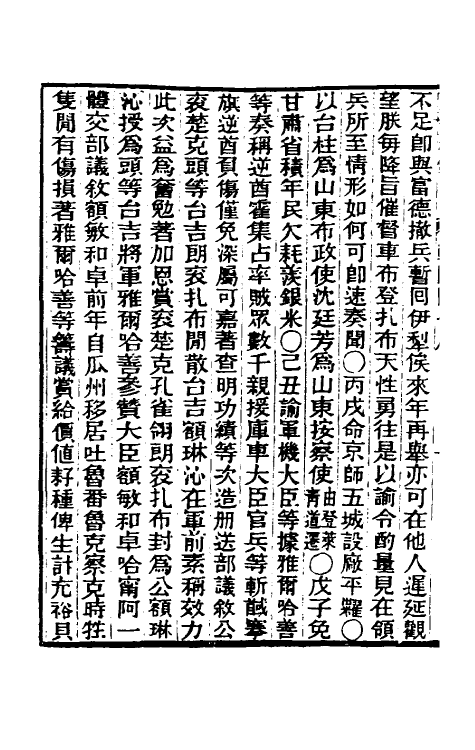 不足卽與富德撤兵暫囘伊犁俟來年再舉亦可在他人遲延觀
望朕每降旨催督車布登扎布天性勇往是以諭令酌量見在領
兵所至情形如何可卽速奏聞〇丙戌命京師五城設廠平糶〇
以台柱爲山東布政使沈廷芳爲山東按察使由登萊青道遷〇戊子免
甘肅省積年民欠耗羨銀米〇己丑諭軍機大臣等據雅爾哈善
等奏稱逆酋霍集占率賊眾數千親援庫車大臣官兵等斬馘搴
旗逆酋負傷僅免深屬可嘉著查明功績等次造册送部議敘公
衮楚克頭等台吉朗衮扎布閒散台吉額琳沁在軍前素稱效力
此次益爲奮勉著加恩賞衮楚克孔雀翎朗衮扎布封爲公額琳
沁授爲頭等台吉將軍雅爾哈善參贊大臣額敏和卓哈甯阿一
體交部議敘額敏和卓前年自瓜州移居吐魯番魯克察克時牲
隻閒有傷損著雅爾哈善等籌議賞給價値耔種俾生計充裕貝